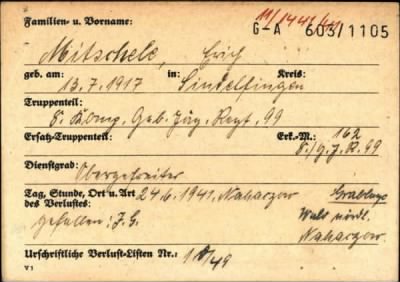 11/1441/41
Familien- u. Vorname:
G-A 603/1105
Mitschele, Erich
geb. am: in: Kreis:
13.7.1917 Sindelfingen
Truppenteil:
8. Komp. Geb. Jäg. Regt. 99
Ersatz-Truppenteil: Erk.-M.: 162
8./G.J.R. 99
Dienstgrad:
Obergefreiter
Tag, Stunde, Ort u. Art
des Verlustes:
24.6.1941, Nahaczow
Grablage
gefallen, I.G.
Wald nördl.
Nahaczow
Urschriftliche Verlust-Listen Nr.:
V 1